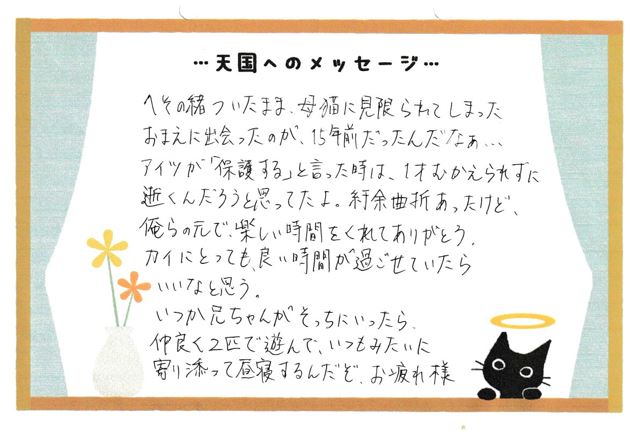 …天国へのメッセージ…
へその緒ついたまま、母猫に見限られてしまった
おまえに出会ったのが、15年前だったんだなぁ…
アイツが「保護する」と言った時は、1才むかえられずに
逝くんだろうと思ってたよ。紆余曲折あったけど、
俺らの元で、楽しい時間をくれてありがとう。
カイにとっても、良い時間が過ごせていたら
いいなと思う。
いつか兄ちゃんがそっちにいったら、
仲良く2匹で遊んで、いつもみたいに
寄り添って昼寝するんだぞ。お疲れ様